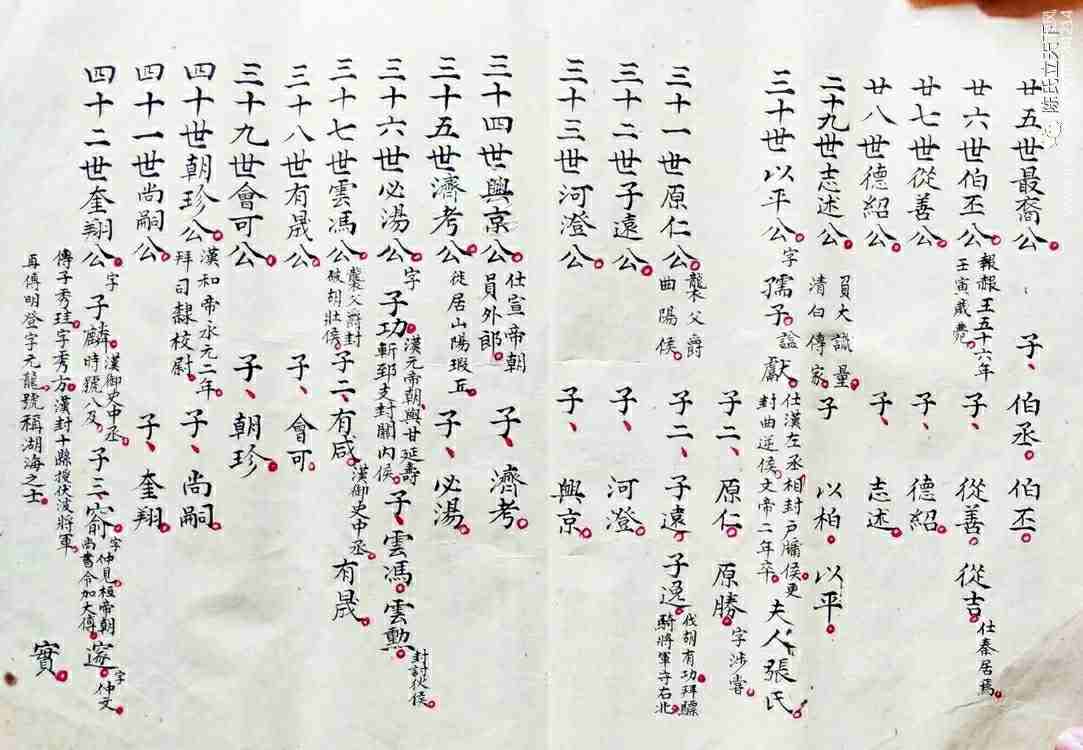 廿五世最裔公。子、伯丞。伯丕。
廿六世伯丕公。報赧王五十六年壬寅歲薨。子、從善。從吉。仕秦居焉。
廿七世從善公。子、德紹。
廿八世德紹公。子、志述。
二十九世志述公。負大識量。清白傳家。子以柏。以平。
三十世以平公。字孺子。諡獻。仕漢左丞相封戶牖侯。更封曲逆侯。文帝二年卒。夫人、張氏。
子二、原仁。原勝。字涉
三十一世原仁公。襲父爵曲陽侯。子二、子遠。子逸。伐胡有功拜驃騎將軍守右北
三十二世子遠公。子、河澄。
三十三世河澄公。子、興京。
三十四世興京公。仕宣帝朝員外郎。子濟考。
三十五世濟考公。徙居山陽瑕丘。子、必湯。
三十六世必湯公。字子功。漢元帝朝、與甘延壽斬郅支封關內侯。子、雲馮。雲勳。封討狄侯。
三十七世雲馮公。襲父爵封破胡壯侯。子二、有咸。漢御史中丞。有晟。
三十八世有晟公。子、會可。
三十九世會可公。子、朝珍。
四十世朝珍公。漢和帝永元二年拜司隸校尉。子、尚嗣。
四十一世尚嗣公。子、奎翔。
四十二世奎翔公。字子麟。漢御史中丞。時號八及。子三、寔。字仲見。桓帝朝尚書令加大傅。邃。字仲文。實。
傳子秀珪。字秀方。漢封十縣授伏波將軍。
再傳明登字元龍。號稱湖海之士。
陳氏立天下